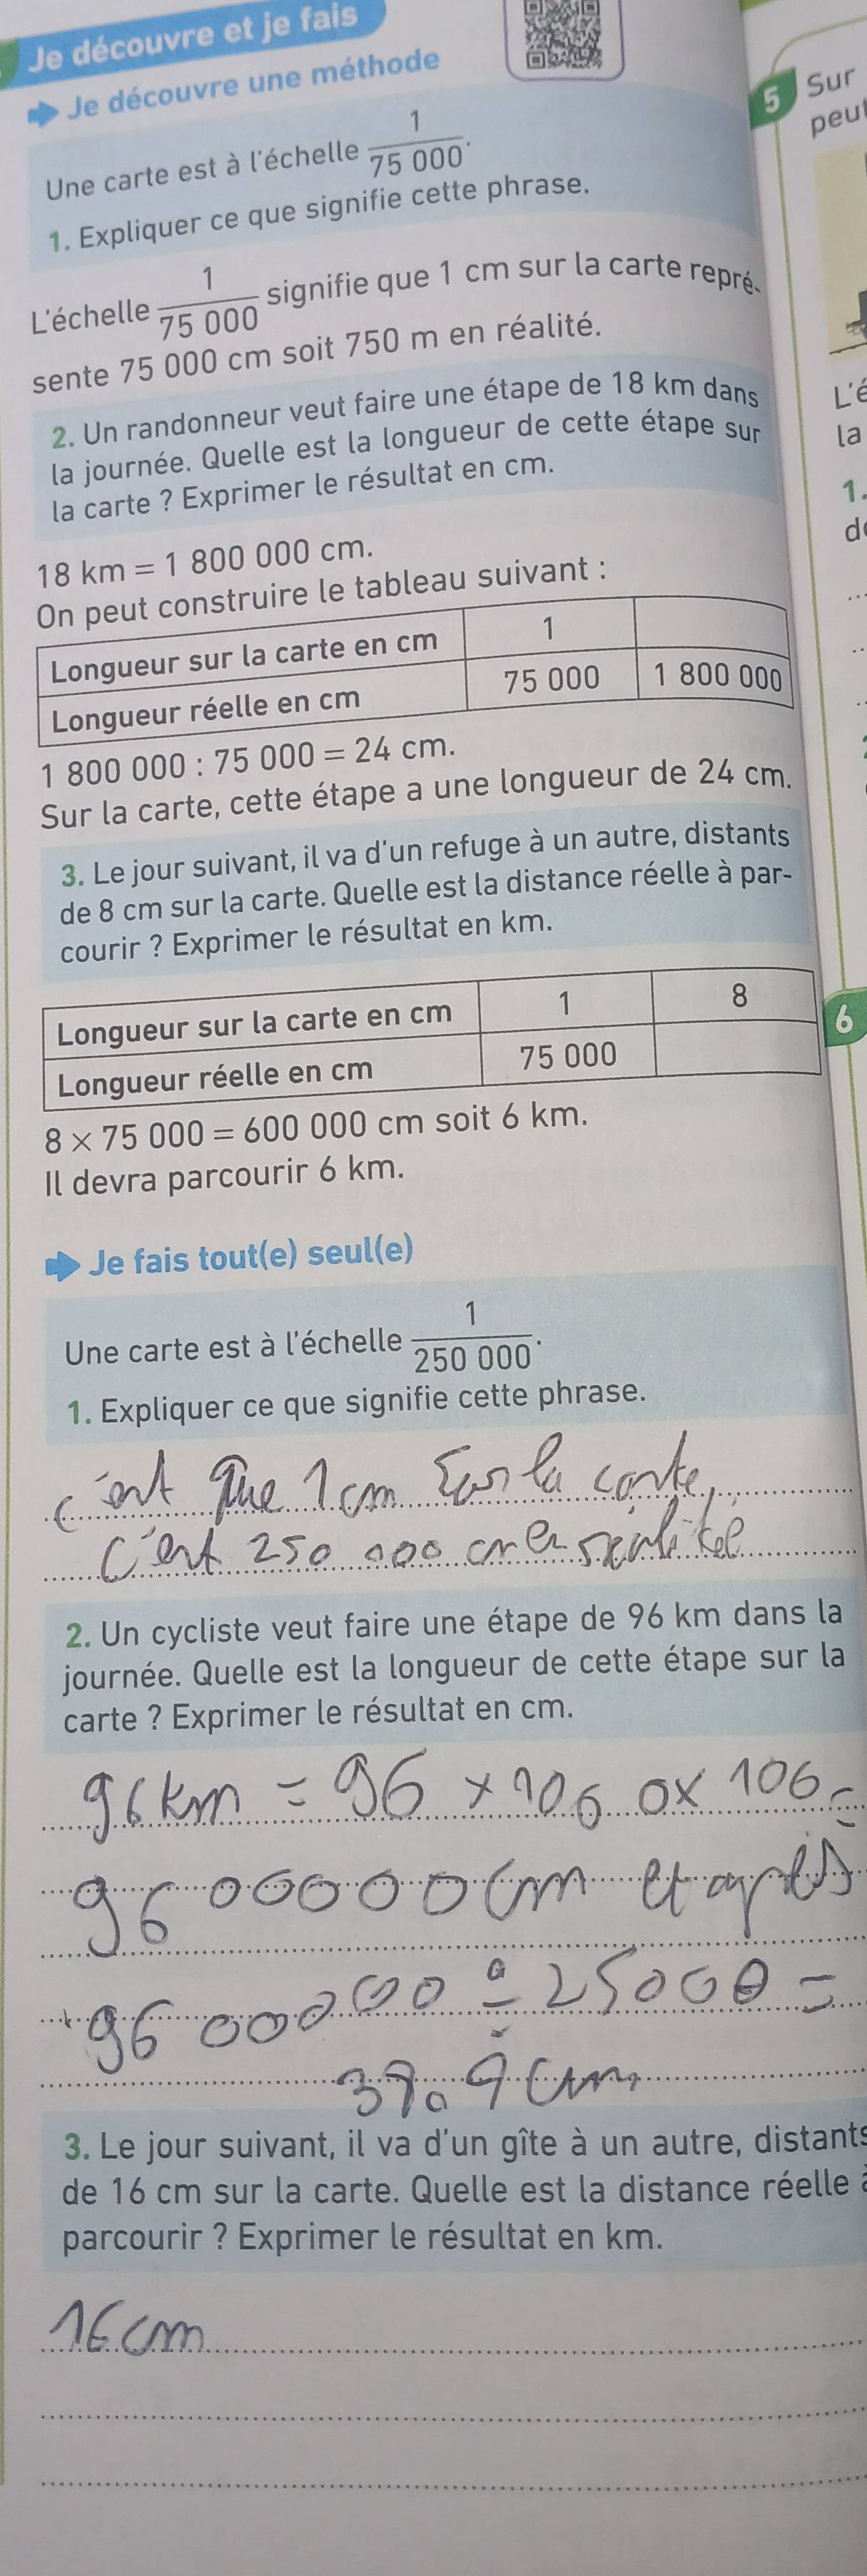 Je découvre et je fais
Je découvre une méthode
Une carte est à l'échelle 1/75 000.
1. Expliquer ce que signifie cette phrase.
L'échelle 1/75 000 signifie que 1 cm sur la carte repré-
sente 75 000 cm soit 750 m en réalité.
2. Un randonneur veut faire une étape de 18 km dans
la journée. Quelle est la longueur de cette étape sur
la carte ? Exprimer le résultat en cm.
18 km = 1 800 000 cm.
On peut construire le tableau suivant :
Longueur sur la carte en cm 1
Longueur réelle en cm 75 000 1 800 000
1 800 000 : 75 000 = 24 cm.
Sur la carte, cette étape a une longueur de 24 cm.
3. Le jour suivant, il va d'un refuge à un autre, distants
de 8 cm sur la carte. Quelle est la distance réelle à par-
courir ? Exprimer le résultat en km.
Longueur sur la carte en cm 1 8
Longueur réelle en cm 75 000
8 × 75 000 = 600 000 cm soit 6 km.
Il devra parcourir 6 km.
Je fais tout(e) seul(e)
Une carte est à l'échelle 1/250 000.
1. Expliquer ce que signifie cette phrase.
c'est que 1 cm sur la carte,
c'est 250 000 cm en
2. Un cycliste veut faire une étape de 96 km dans la
journée. Quelle est la longueur de cette étape sur la
carte ? Exprimer le résultat en cm.
96 km = 96 ×
9600000 cm et après
=
cm
3. Le jour suivant, il va d'un gîte à un autre, distants
de 16 cm sur la carte. Quelle est la distance réelle à
parcourir ? Exprimer le résultat en km.
16 cm
5 Sur
peut
L'é
la
1.
6